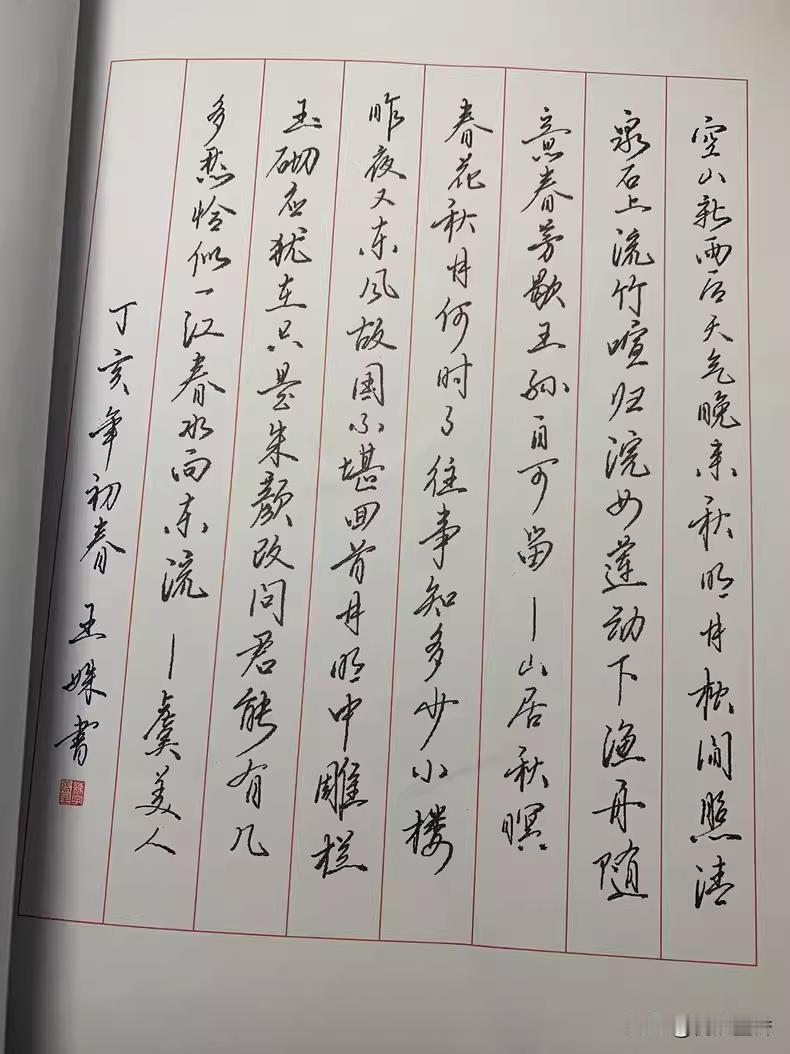 空山新雨后天气晚来秋明月松间照清
泉石上流竹喧归浣女莲动下渔舟随
意春芳歇王孙自可留—山居秋暝
春花秋月何时了往事知多少小楼
昨夜又东风故国不堪回首月明中雕栏
玉砌应犹在只是朱颜改问君能有几
多愁恰似一江春水向东流—虞美人
丁亥年初春 王姝书